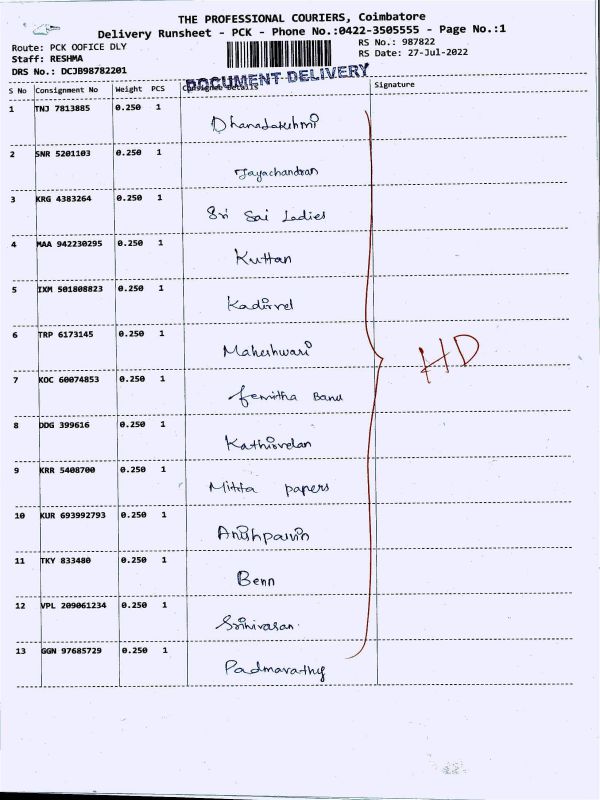 THE PROFESSIONAL COURIERS, Coimbatore
Delivery Runsheet - PCK - Phone No.:0422-3505555 - Page No.:1
Route: PCK OOFICE DLY RS No.: 987822
Staff: RESHMA RS Date: 27-Jul-2022
DRS No.: DCJB98782201
DOCUMENT DELIVERY
S No Consignment No Weight PCS Consignee Details Signature
1 TNJ 7813885 0.250 1 Dhanadakshmi
2 SNR 5201103 0.250 1 Jayachandran
3 KRG 4383264 0.250 1 Sri Sai Ladies
4 MAA 942230295 0.250 1 Kuttan
5 IXM 501808823 0.250 1 Kadirvel
6 TRP 6173145 0.250 1 Maheshwari
HD
7 KOC 60074853 0.250 1 Banu
8 DDG 399616 0.250 1 Kathirvelan
9 KRR 5408700 0.250 1 papers
10 KUR 693992793 0.250 1
11 TKY 833480 0.250 1 Benn
12 VPL 209061234 0.250 1 Srinivasan
13 GGN 97685729 0.250 1 Padmavathy